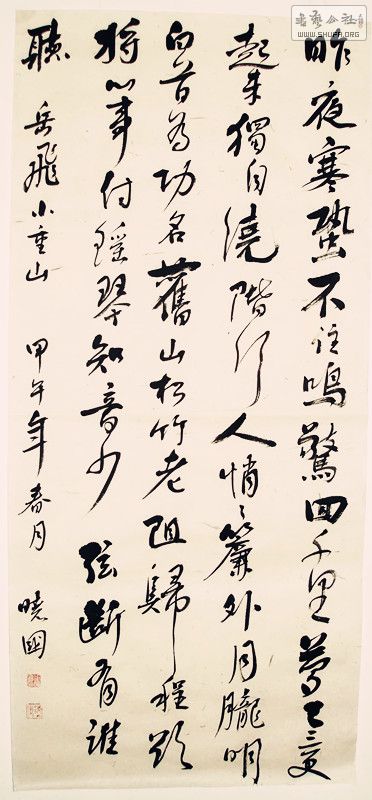 昨夜寒蛩不住鳴驚回千里夢已三更
起來獨自繞階行人悄悄簾外月朧明
白首為功名舊山松竹老阻歸程欲
將心事付瑤琴知音少弦斷有誰
聽 岳飛小重山 甲午年春月 曉國
書藝公社
WWW.SHUFA.ORG